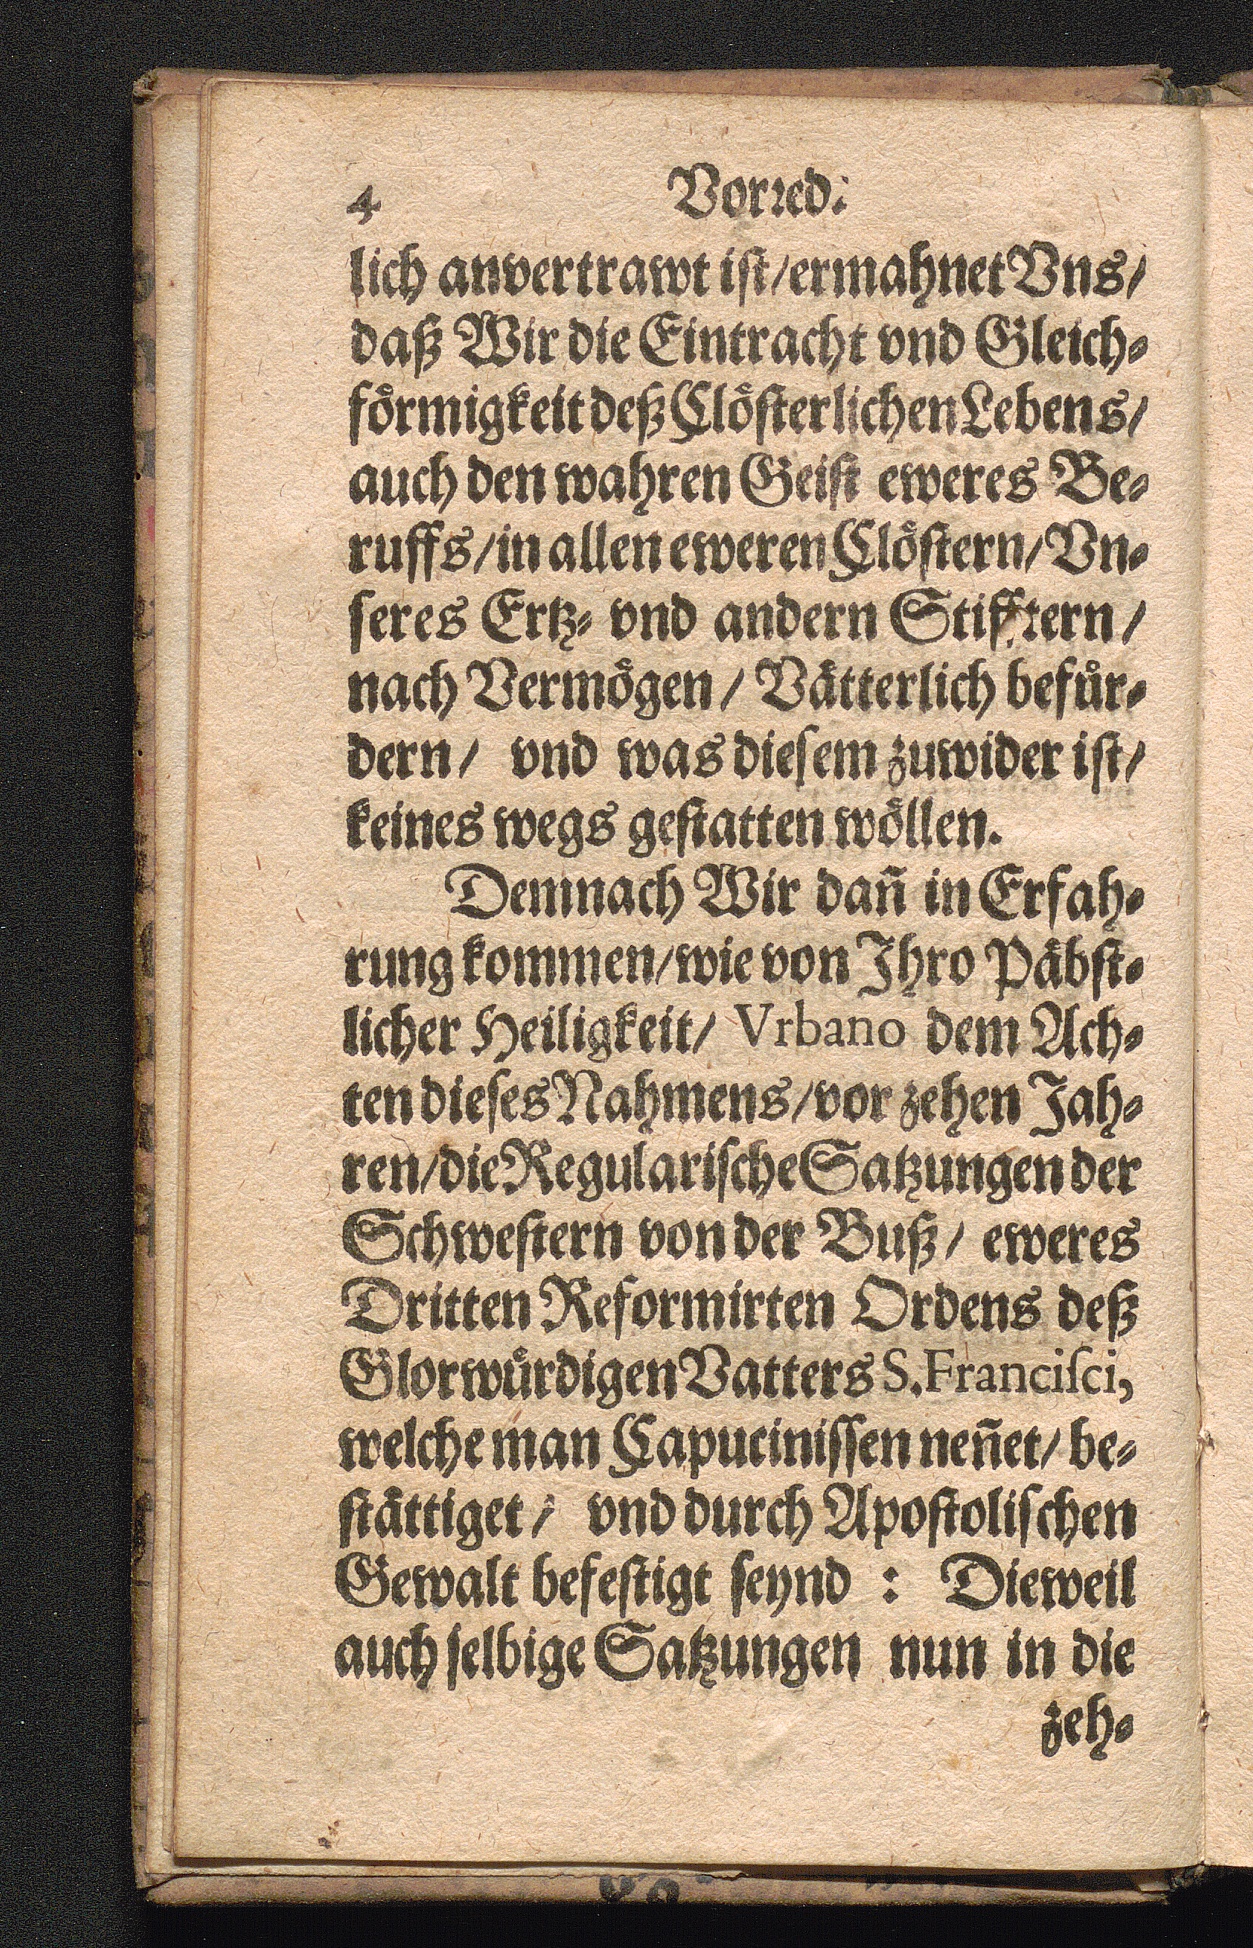 4 Vorred.
lich anvertrawt ist/ermahnet Vns/
daß Wir die Eintracht vnd Gleich-
förmigkeit deß Clösterlichen Lebens/
auch den wahren Geist eweres Be-
ruffs/in allen eweren Clöstern/Vn-
seres Ertz- vnd andern Stifftern/
nach Vermögen/ Vätterlich befür-
dern/ vnd was diesem zuwider ist/
keines wegs gestatten wöllen.
Demnach Wir dañ in Erfah-
rung kommen/wie von Ihro Päbst-
licher Heiligkeit/ Vrbano dem Ach-
ten dieses Nahmens/vor zehen Jah-
ren/die Regularische Satzungen der
Schwestern von der Buß/ eweres
Dritten Reformirten Ordens deß
Glorwürdigen Vatters S. Franciſci,
welche man Capucinissen neñet/ be-
stättiget/ vnd durch Apostolischen
Gewalt befestigt seynd : Dieweil
auch selbige Satzungen nun in die
zeh-